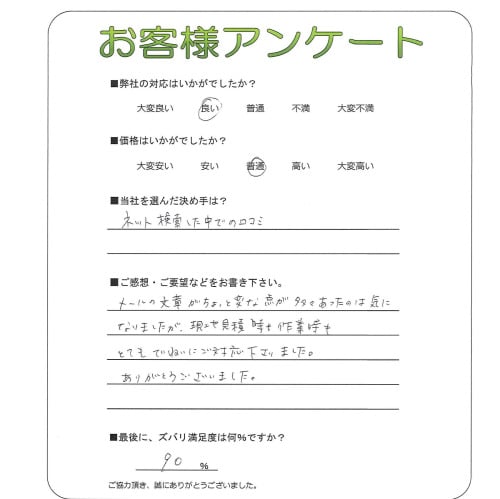 お客様アンケート
■弊社の対応はいかがでしたか？
大変良い 良い 普通 不満 大変不満
■価格はいかがでしたか？
大変安い 安い 普通 高い 大変高い
■当社を選んだ決め手は？
ネット検索した中での口コミ
■ご感想・ご要望などをお書き下さい。
メールの文章がちょっと変な点が多々あったのは気に
なりましたが、現地見積時も作業時も
とてもていねいにご対応下さりました。
ありがとうございました。
■最後に、ズバリ満足度は何%ですか？
90 %
ご協力頂き、誠にありがとうございました。